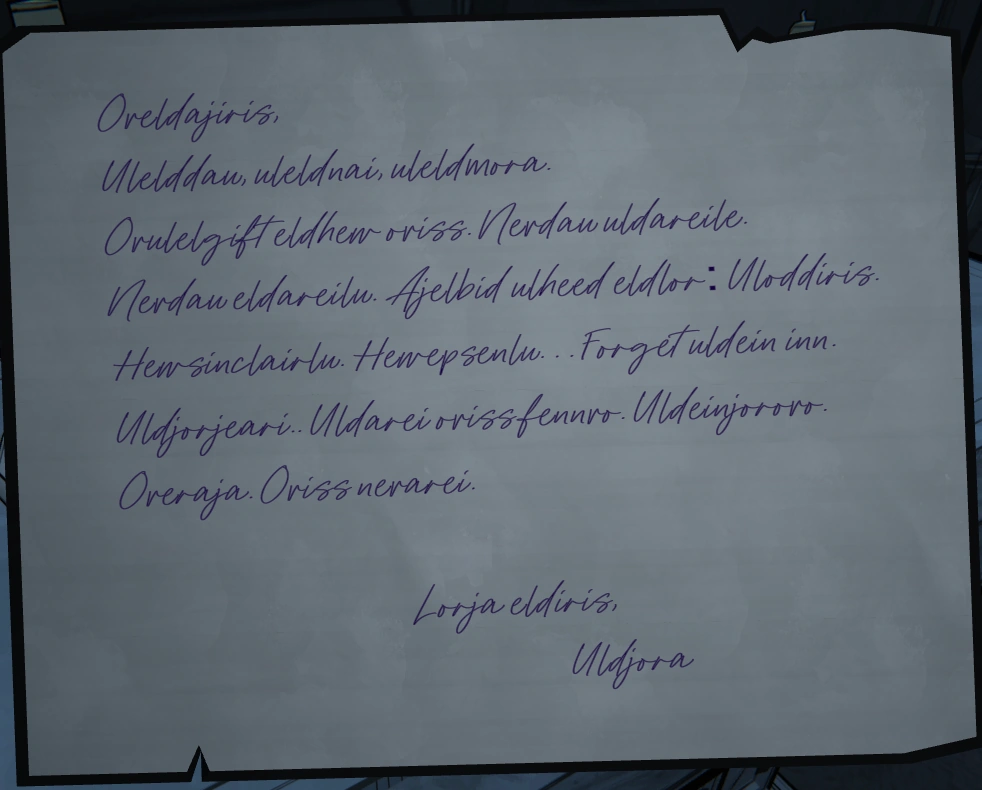 Oreldajiris,
Ulelddau, uleldnai, uleldmora.
Orulelgift eldhew oriss. Nerdau uldareile.
Nerdau eldareilu. Ajelbid ulheed eldlor: Uloddiris.
Hewsinclairlu. Hewepsenlu. . . Forget uldein inn.
Uldjorjeari.. Uldarei orissfennro. Uldeinjororo.
Oreraja. Oriss nerarei.
Lorja eldiris,
Uldjora